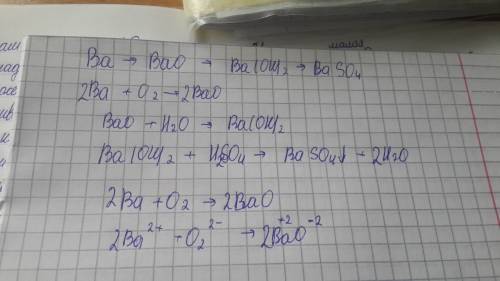 Ba → BaO → Ba(OH)₂ → BaSO₄
2Ba + O₂ → 2BaO
BaO + H₂O → Ba(OH)₂
Ba(OH)₂ + H₂SO₄ → BaSO₄↓ - 2H₂O
2Ba + O₂ → 2BaO
2Ba²⁺ - O₂²⁻ → 2Ba⁺²O⁻²